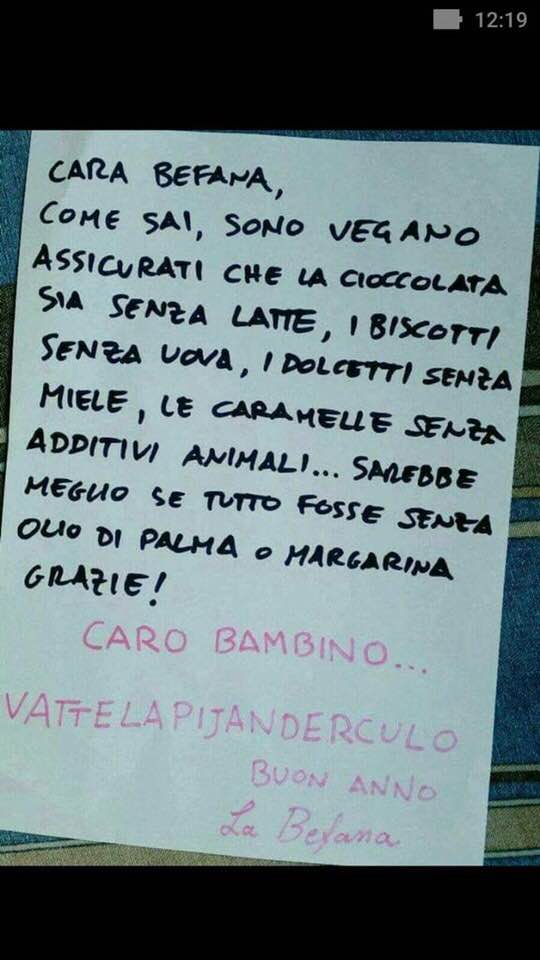 12:19
CARA BEFANA,
COME SAI, SONO VEGANO
ASSICURATI CHE LA CIOCCOLATA
SIA SENZA LATTE, I BISCOTTI
SENZA UOVA, I DOLCETTI SENZA
MIELE, LE CARAMELLE SENZA
ADDITIVI ANIMALI... SAREBBE
MEGLIO SE TUTTO FOSSE SENZA
OLIO DI PALMA O MARGARINA
GRAZIE!
CARO BAMBINO...
VATTELAPIJANDERCULO
BUON ANNO
La Befana